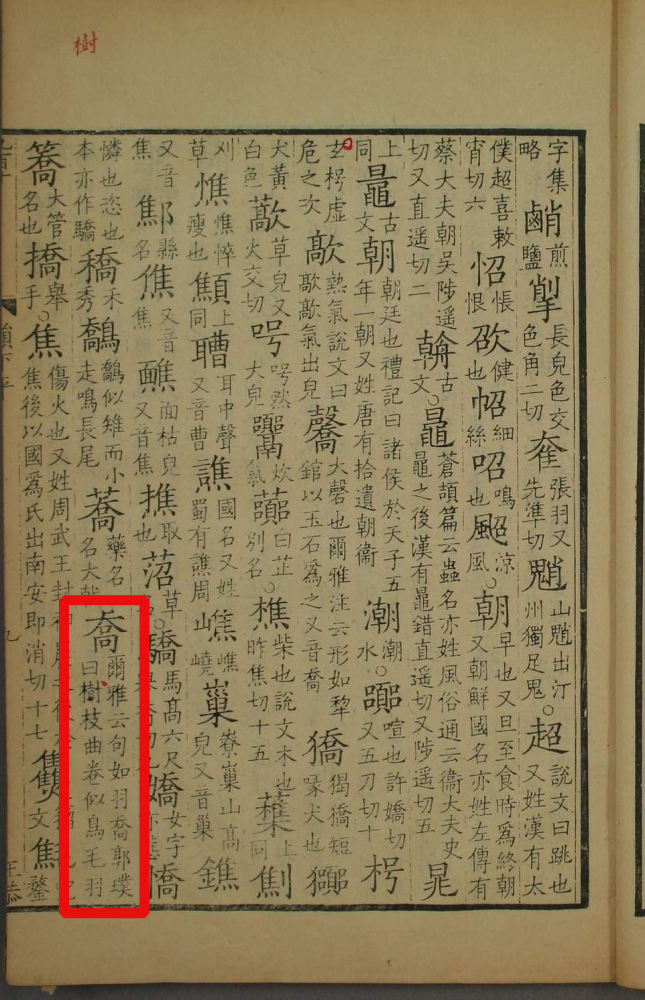 樹
字集略 煎鹽 揱 長皃色交色角二切 奞 張羽又先準切 魈 山魈出汀州獨足鬼○超 說文曰跳也又姓漢有太
僕超喜敕宵切六 怊 悵恨 健也 細絲 鳴也 涼風○朝 早也又旦至食時爲終朝又朝鮮國名亦姓左傳有
蔡大夫朝吳陟遙切又直遙切二 古文○鼂 蒼頡篇云蟲名亦姓風俗通云衞大夫史鼂之後漢有鼂錯直遙切又陟遙切五 晁
上同 鼂 古文 朝 朝廷也禮記曰諸侯於天子五年一朝又姓唐有拾遺朝衡 潮 潮水○嚻 喧也許嬌切又五刀切十 枵
玄枵虛危之次 歊 熱氣說文曰歊歊氣出皃 大磬也爾雅注云形如犂錧以玉石爲之又音喬 獢 猲獢短喙犬也
犬黃白色 藃 草皃又火交切 呺 呺然大皃 炊氣 曰芷別名○樵 柴也說文木也昨焦切十五 上同 劁
刈草 憔 憔悴瘦也 顦 上同 耳中聲又音曹 譙 國名又姓蜀有譙周 嶕 嶕嶢山 寮巢山高皃又音巢 鐎
又音焦 縣名 僬 又音焦 醮 面枯皃又音焦 撨 取也 菬 草名○驕 馬高六尺 嬌 女字 憍
憐也恣也本亦作驕 穚 禾秀 鷮 鷮似雉而小走鳴長尾 蕎 藥名大戟 喬 爾雅云句如羽喬郭璞曰樹枝曲卷似鳥毛羽
簥 大管名也 撟 舉手○焦 傷火也又姓周武王封神農 焦後以國爲氏出南安即消切十七 文 焦